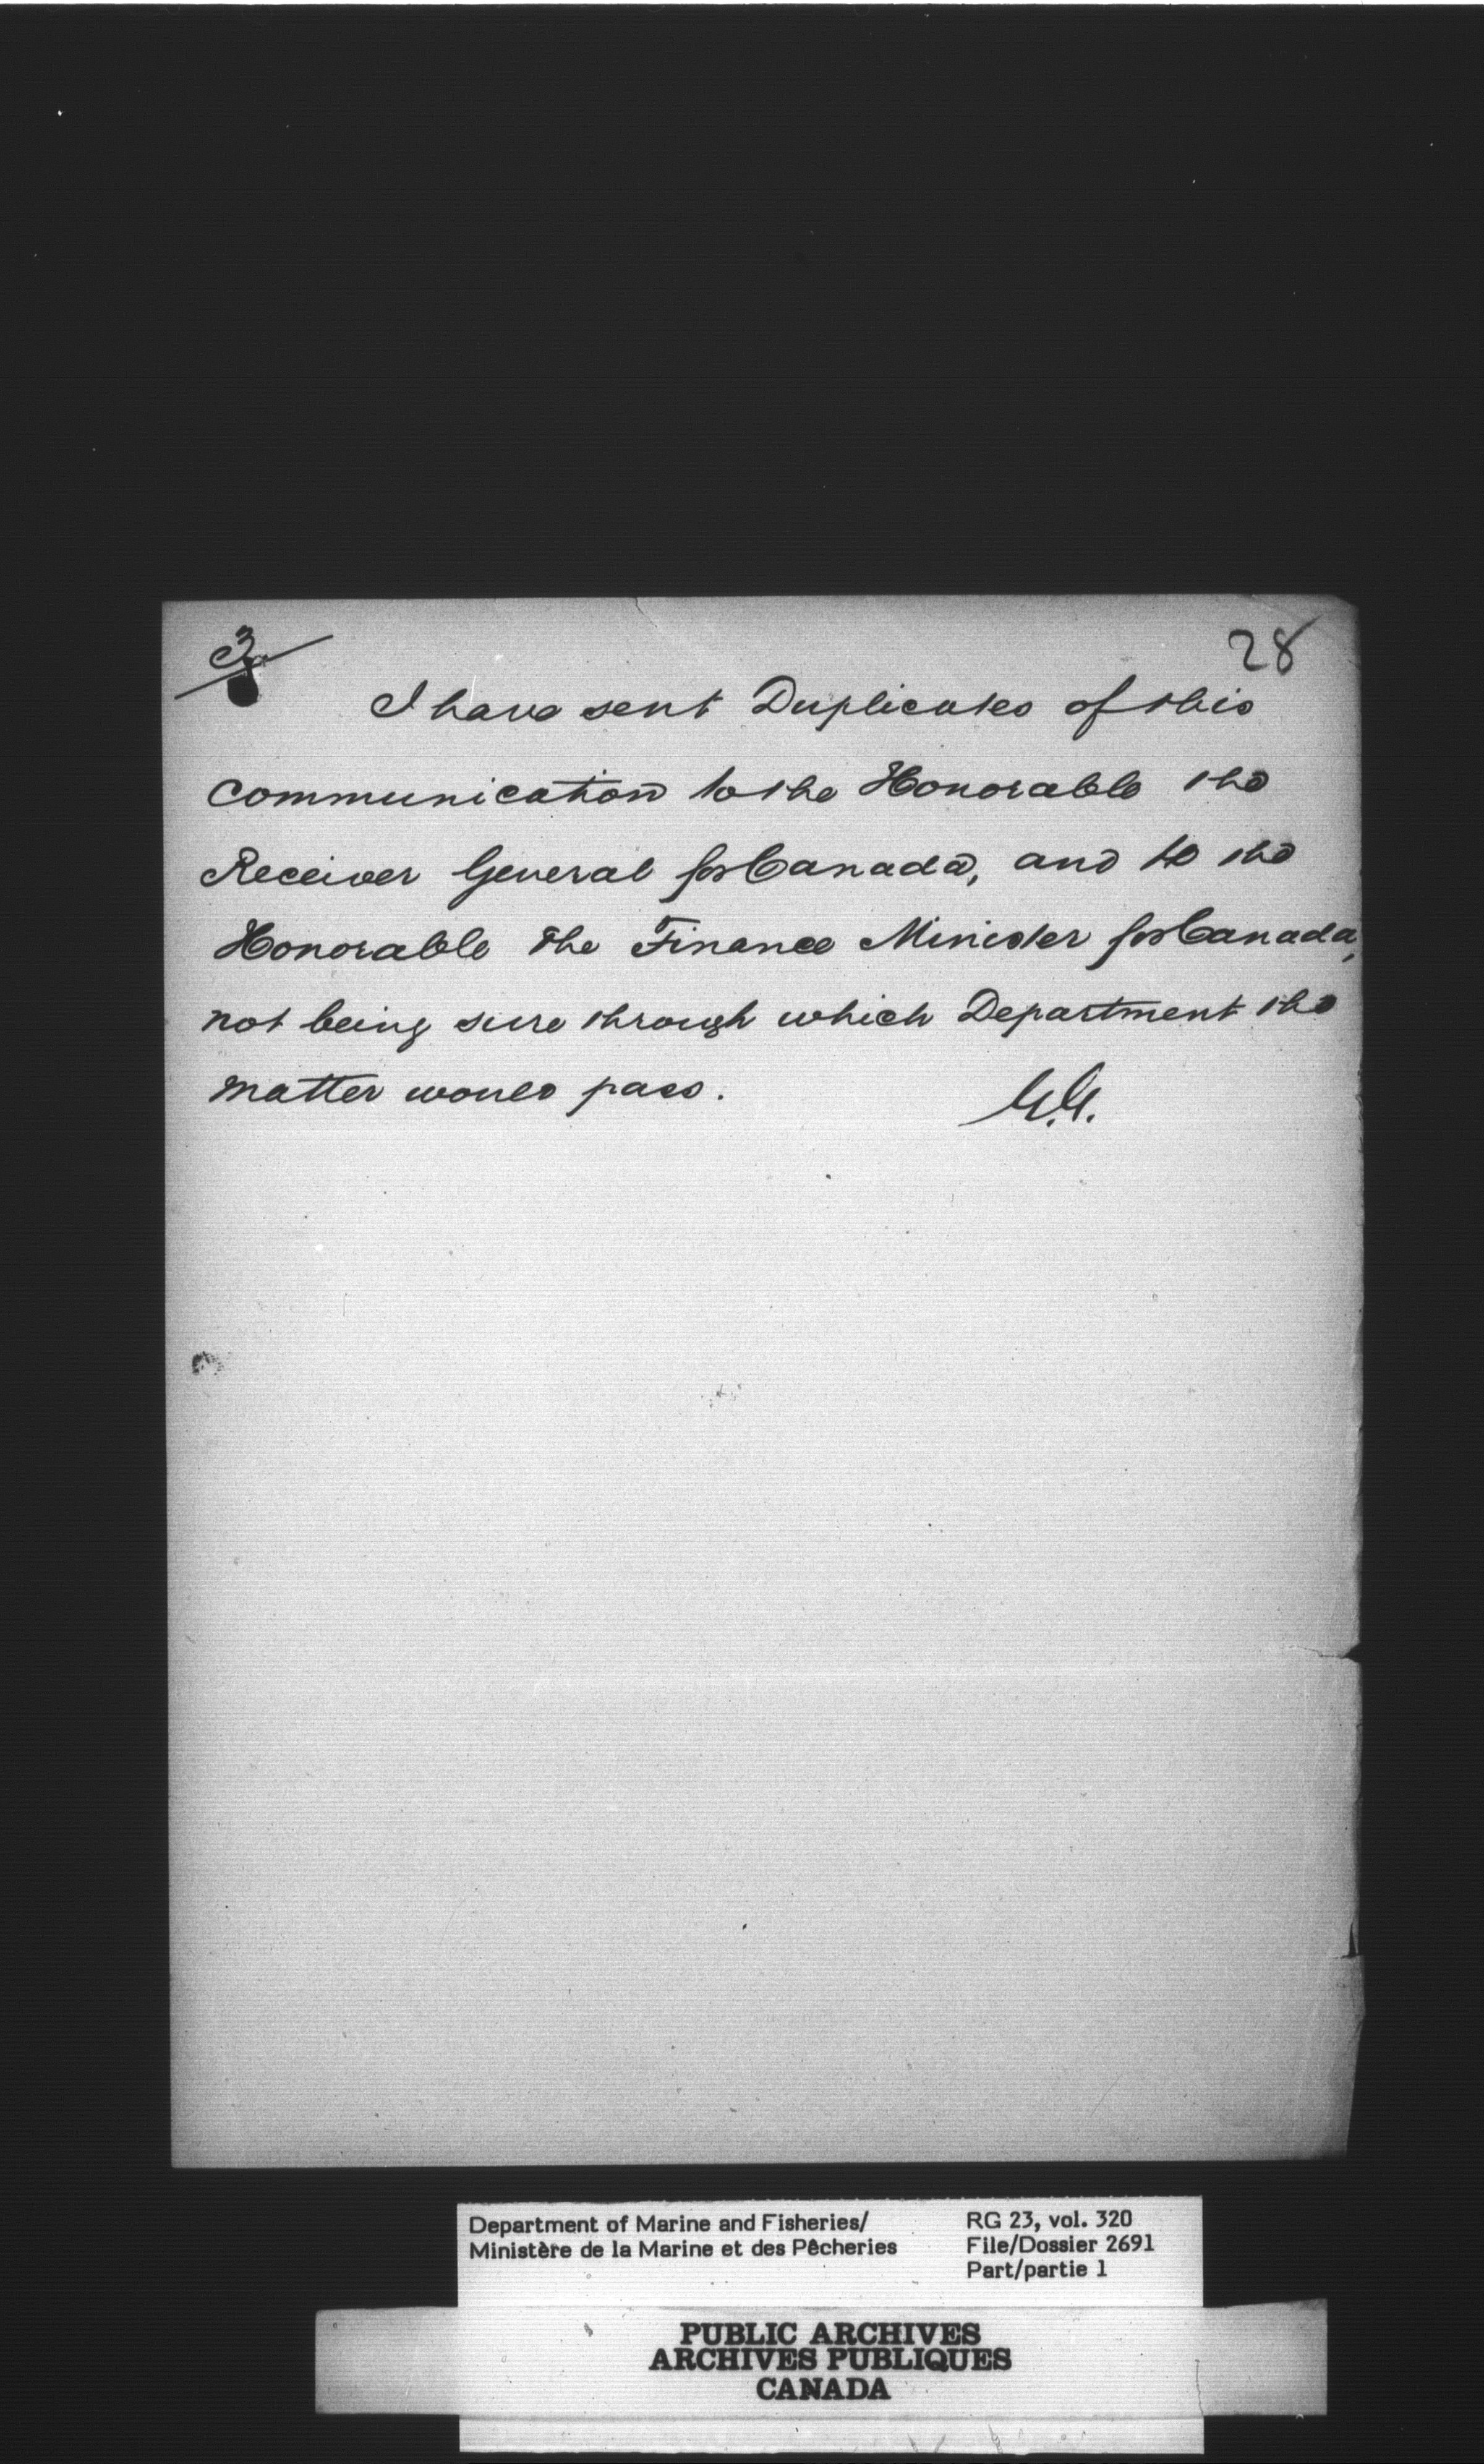 3
28
I have sent Duplicates of this
communication to the Honorable the
Receiver General for Canada, and to the
Honorable The Finance Minister for Canada,
not being sure through which Department the
matter would pass.
G.G.
Department of Marine and Fisheries/
Ministère de la Marine et des Pêcheries
RG 23, vol. 320
File/Dossier 2691
Part/partie 1
PUBLIC ARCHIVES
ARCHIVES PUBLIQUES
CANADA